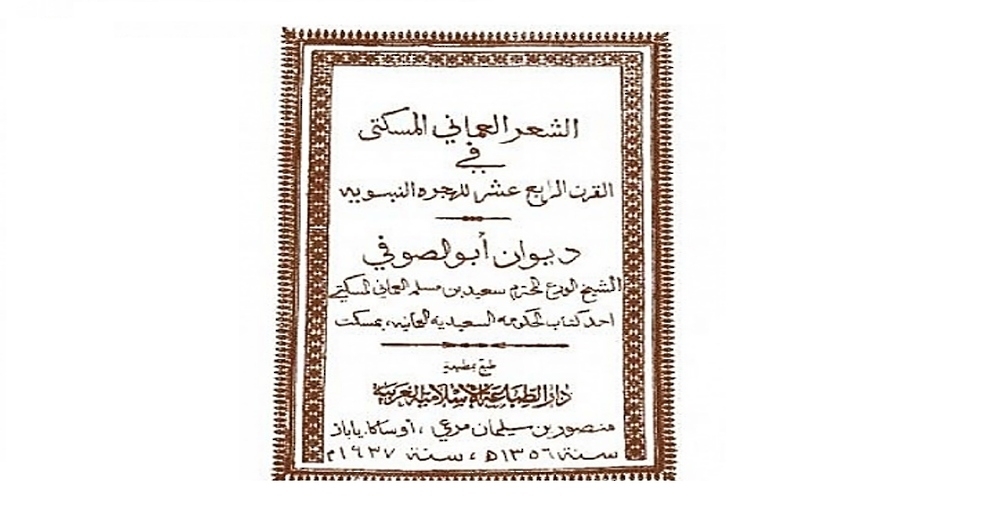 الشعر العماني المسكتي
في
القرن الرابع عشر للهجره النبويه
ديوان أبو الصوفي
الشيخ الورع المحترم سعيد بن مسلم العماني المسكتي
احد كتاب الحكومه السعيديه العمانيه، بمسكت
طبع بمطبعة
دار الطباعة الإسلامية العربية
منصور بن سليمان مرعي، أوساكا ياباز
سنة ١٣٥٦ه، سنة ١٩٣٧م